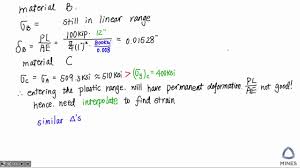 material B.
σ_B = still in linear range
δ_B = PL/AE = 100kip · 12" / (π/4 (1)² (400ksi/0.008)) = 0.01528"
material C
σ_C = σ_A = 509.3ksi ≈ 510ksi > (σ_y)_C = 400ksi
∴ entering the plastic range, will have permanent deformation, PL/AE not good!
hence, need interpolate to find strain
similar Δ's
MINES